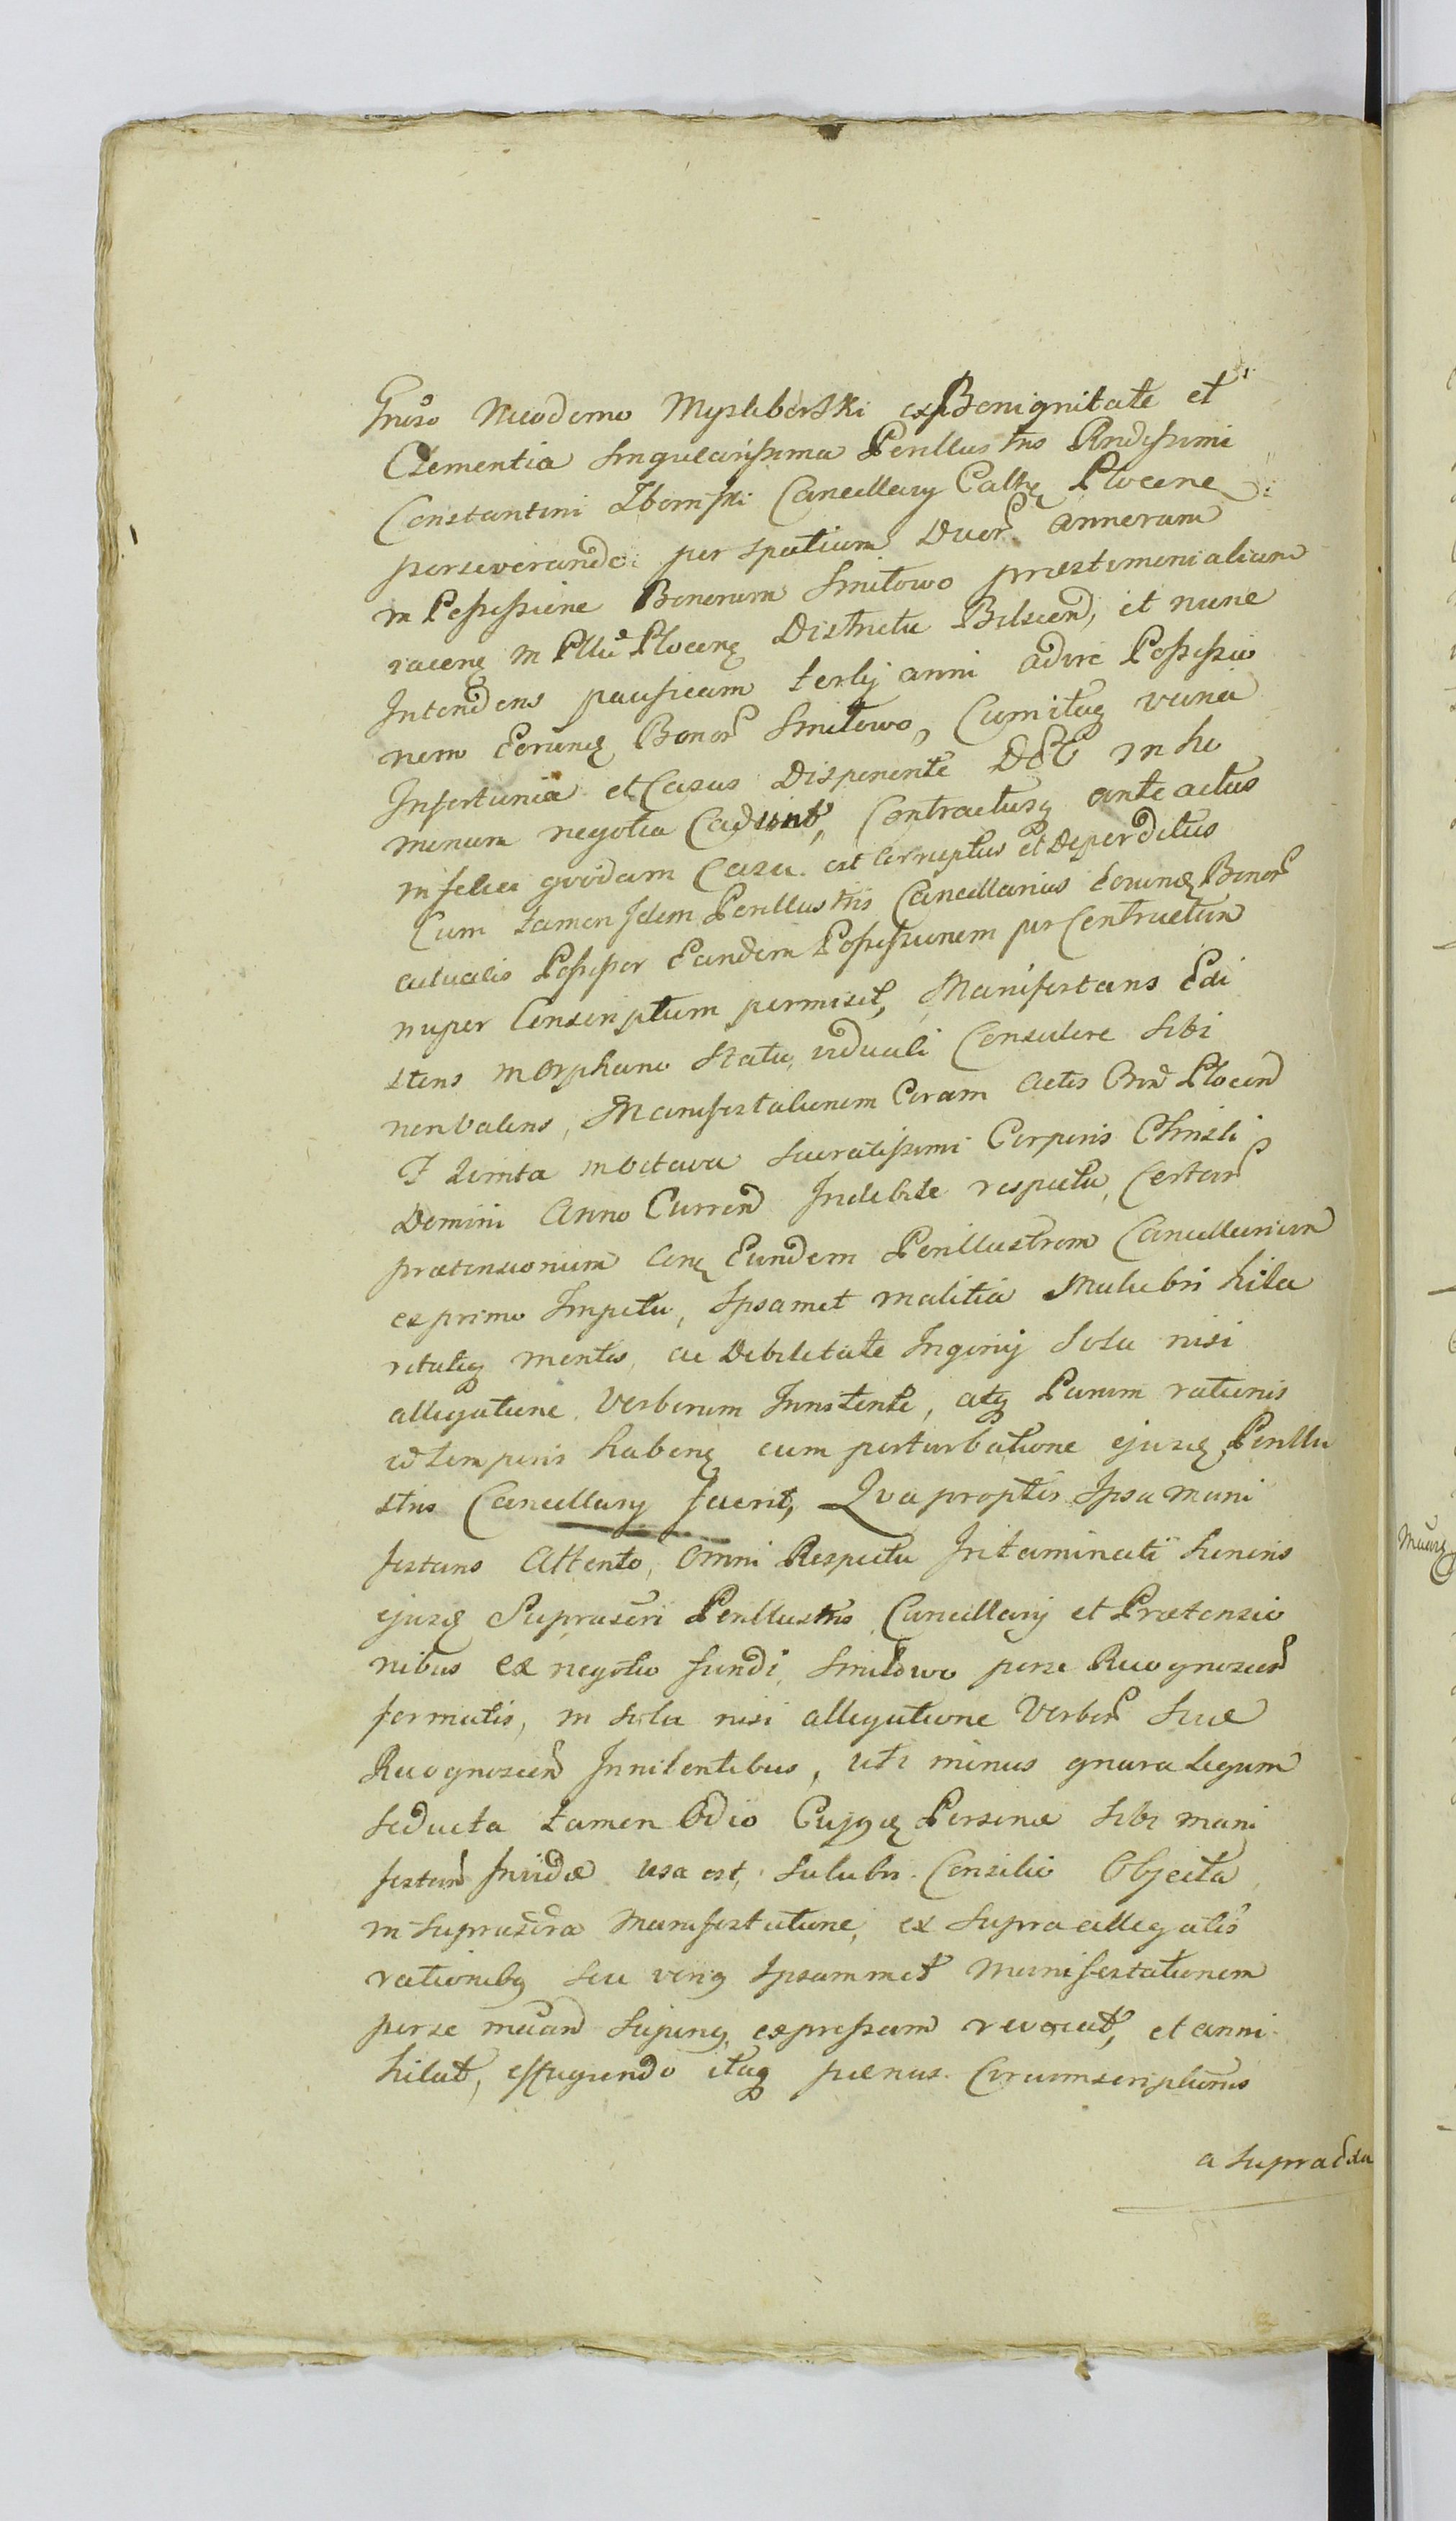 Gnoso Nicodemo Myslibórski ex Benignitate et
Clementia singularissima Perillustris Rndissimi
Constantini Zbominski Cancellarij Cathę Plocenę
perseverando per spatium duor annorum
in Possessione Bonorum Smiłowo præstimonialium
iacenę in Pllu Plocenę Districtu Bilscen, et nunc
Intendens pacificam tertij anni adire Possessio
nem Eorundę Bonor Smiłowo, Cum itaq varia
Infortunia et Casus Disponente DEO in ho
minum negotia Cadunt, Contractusq ante actus
infelici quodam Casu est Corruptus et Deperditus
Cum tamen Idem Perillustris Cancellarius Eorundę Bonor
actualis Possessor Eandem Possessionem per Contractum
nuper Conscriptum permisit, Manifestans Exi
stens in orphano statu, viduali Consulere sibi
non valens, Manifestationem Coram Actis Plocen
F Quinta in octava Sacratissimi Corporis Christi
Domini Anno Curren Indebite respectu, Certar
prætensionum Conę Eundem Perillustrem Cancellarium
ex primo Impetu, Ipsamet malitia Muliebri hila
ritateq mentis, ac Debilitate Ingenij Sola nisi
allegatione Verborum Innitente, atq Parum rationis
et temporis habenę cum perturbatione ejusdę Perillu
stris Cancellarij fecerit, Qua propter Ipsa mani
festans Attento, omni Respectu Intaminati honoris
ejusdę Suprascri Perillustris Cancellarij et Prætensio
nibus ex negotio fundi Smiłowo per se Recognoscen
formatis, in sola nisi allegatione Verbor Suæ
Recognoscen Innitentibus, uti minus gnara Legum
seducta tamen Odio Cujusdę Personæ sibi mani
festan Invidæ usa est, salubri Consilio Objecta
in suprascra Manifestatione, ex supra allegatis
rationibq seu verius Ipsammet Manifestationem
per se mean sujung expressam revocat, et anni
hilat, effugiendo itaq pænas Circumscriptionis
a supradta